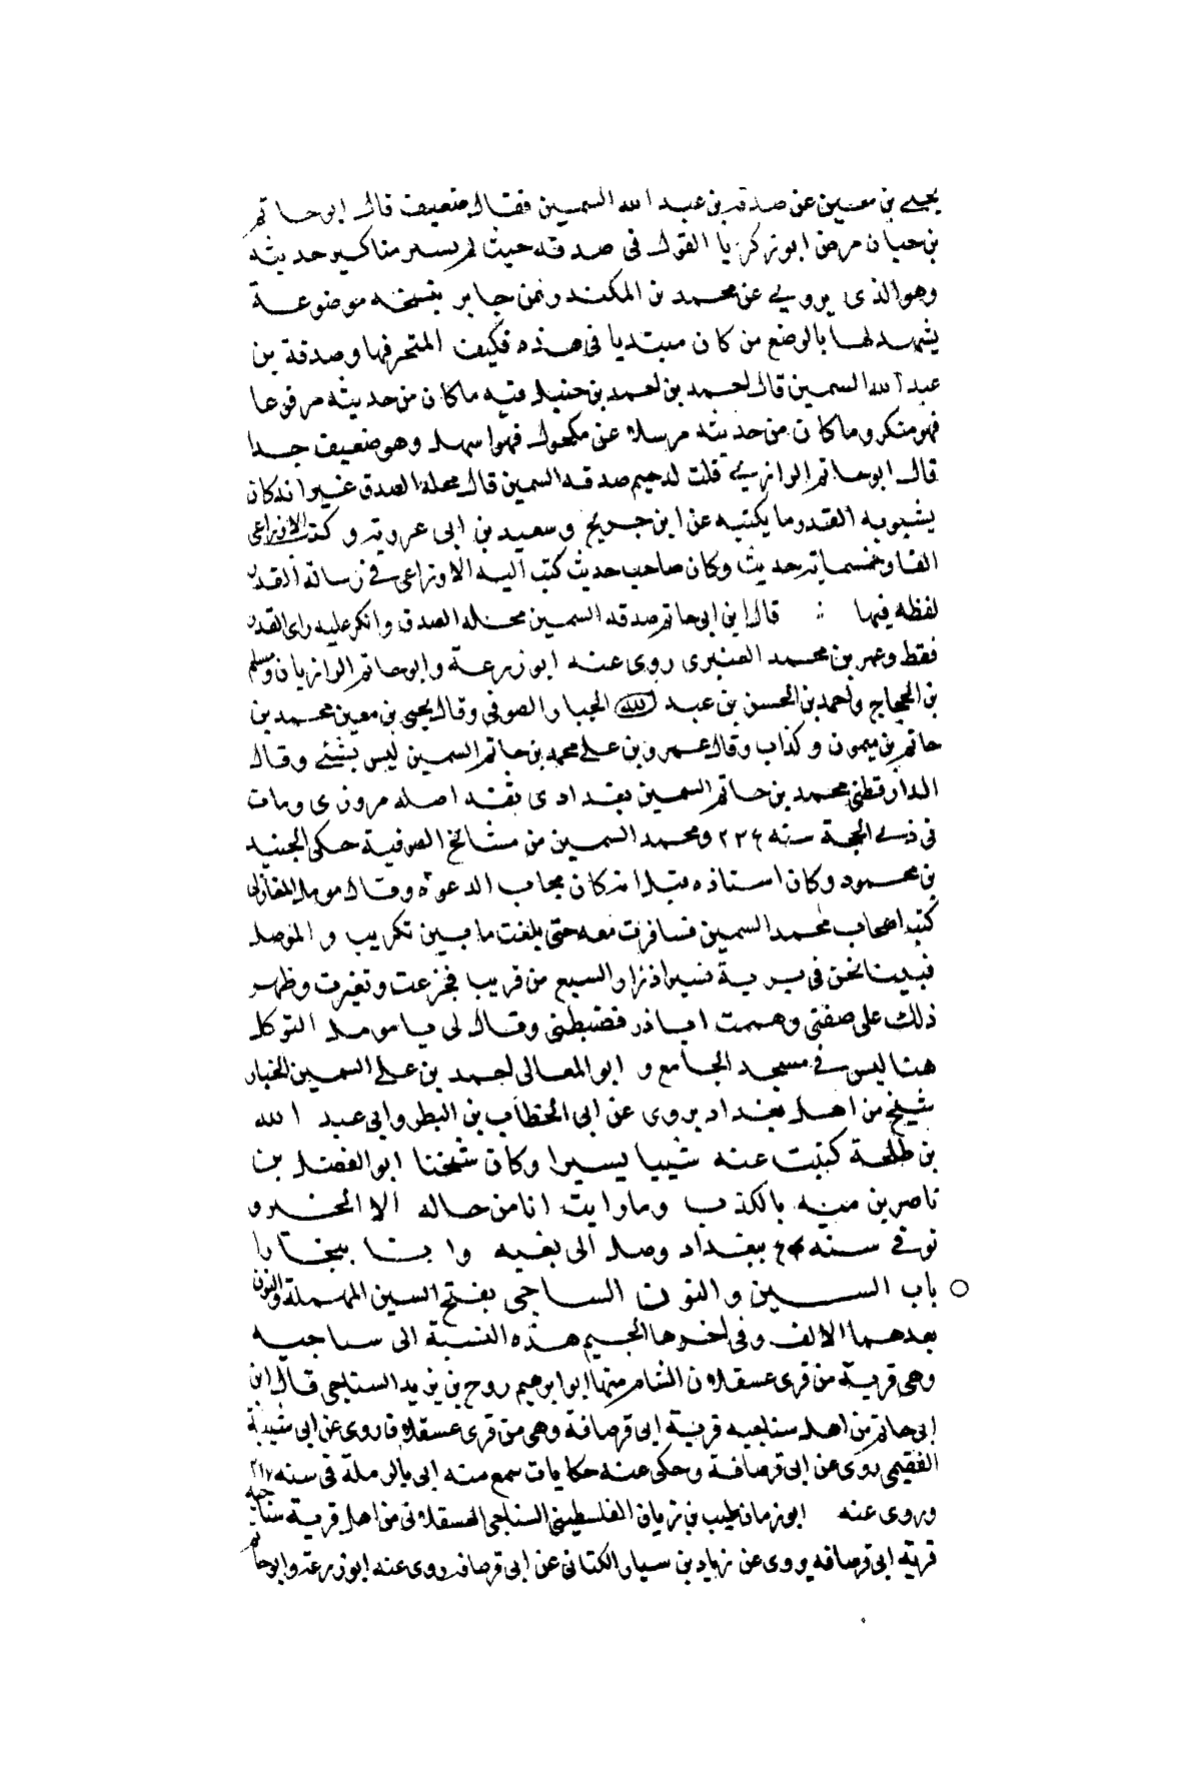 يحيى بن معين عن صدقة بن عبد الله السمين فقال ضعيف قال ابو حاتم
بن حبان مرض ابو زكريا القول فى صدقه حيث لم يسبر مناكير حديثه
وهو الذى يروى عن محمد بن المكند وعن جابر بنسخه موضوعة
يشهد لها بالوضع من كان مبتديا فى هذه فكيف المتحر فيها وصدقة بن
عبد الله السمين قال احمد بن احمد بن حنبل فيه ما كان من حديثه مرفوعا
فهو منكر وما كان من حديثه مرسلا عن مكحول فهو اسهل وهو ضعيف جدا
قال ابو حاتم الرازى قلت لدحيم صدقه السمين قال محله الصدق غير انه كان
يشوبه القدر وما يكتبه عن ابن جريج وسعيد بن ابى عروبة و كتب الاوزاعى
الفا وخمسمايه حديث وكان صاحب حديث كتب اليه الاوزاعى فى رسالة القدر
لفظه فيها ∴ قال ابن ابى حاتم صدقه السمين محله الصدق وانكر عليه راى القدر
فقط وعمر بن محمد العنبرى روى عنه ابو زرعة وابو حاتم الرازيان ومسلم
بن الحجاج واحمد بن الحسن بن عبد الله الجبار الصوفى وقال يحيى بن معين محمد بن
حاتم بن ميمون و كذاب وقال عمرو بن على محمد بن حاتم السمين ليس بشئ وقال
الدارقطنى محمد بن حاتم السمين بغدادى ثقه اصله مروزى ومات
فى ذى الحجة سنه ٢٣٦ ومحمد السمين من مشائخ الصوفية حكى الجنيد
بن محمود وكان استاذه قبلا انه كان مجاب الدعوة وقال مومل المغازلى
كنت اصحاب محمد السمين فسافرت معه حتى بلغت ما بين تكريب و الموصل
فبينا نحن فى برية نسير اذ زار السبع من قريب فجزعت وتغيرت وظهر
ذلك على صفتى وهممت ابادر فضبطنى وقال لى يا مومل التوكل
هنا ليس فى مسجد الجامع و ابو المعالى احمد بن على السمين الخباز
شيخ من اهل بغداد يروى عن ابى الخطاب بن البطر وابى عبد الله
بن طلحة كتبت عنه شييا يسيرا وكان شيخنا ابو الفضل بن
ناصر بن منبه بالكذب وما رايت انا من حاله الا الخير و
توفى سنه ببغداد وصل الى نعيه وانا ببخارا
باب السين والنون الساجى بفتح السين المهملة والنون
بعدهما الالف وفى اخرها الجيم هذه النسبة الى سناجيه
وهى قرية من قرى عسقلان الشام منها ابو ابرهيم روح بن يزيد السناجى قال ابن
ابى حاتم من اهل سناجيه قرية ابى قرصافة وهى من قرى عسقلان روى عن ابى شيبة
الفقيمى روى عن ابى قرصافة وحكى عنه حكايات سمع منه ابى بالرملة فى سنه ٢١٧
وروى عنه ابو زمان طيب بن زبان الفلسطينى السناجى العسقلانى من اهل قرية سناجيه
قرية ابى قرصافه يروى عن زياد بن سيار الكنانى عن ابى قرصافه روى عنه ابو زرعة وابو حاتم